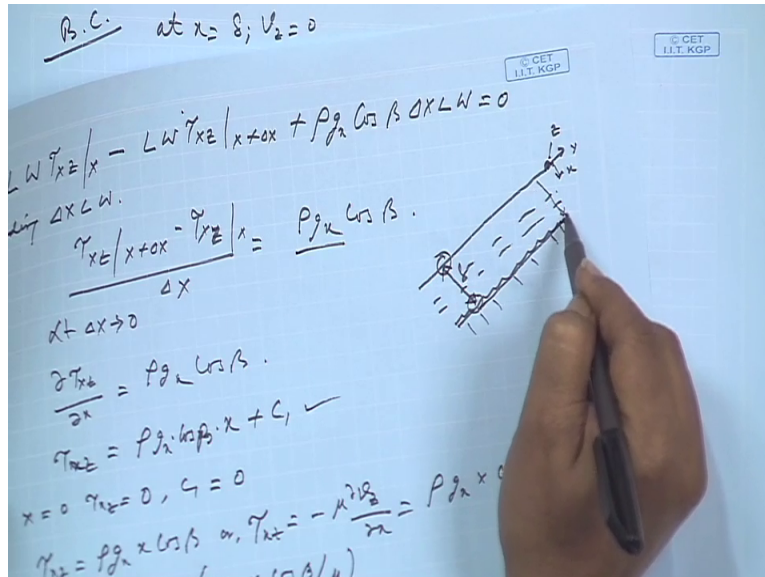 B.C. at x = δ; V_z = 0
© CET
I.I.T. KGP
© CET
I.I.T. KGP
LW τ_xz|_x − LW τ_xz|_x+Δx + ρg_x Cos β ΔX L W = 0
ΔX L W.
τ_xz|_x+Δx − τ_xz|_x / ΔX = ρg_x Cos β.
Lt ΔX→0
∂τ_xz/∂x = ρg_x Cos β.
τ_xz = ρg_x·Cosβ·x + C₁ ✓
x = 0 τ_xz = 0, C₁ = 0
τ_xz = ρg_x x Cos β or, τ_xz = −μ ∂v_z/∂x = ρg_x x
z
y
x